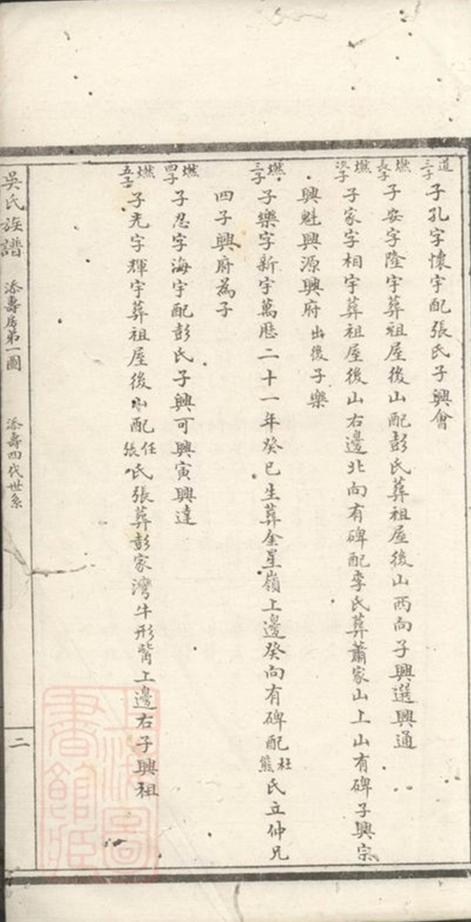 道三子 子孔字懷宇配張氏子興會
燃長子 子安字隆宇葬祖屋後山配彭氏葬祖屋後山西向子興選興通
燃次子 子家字相宇葬祖屋後山右邊北向有碑配李氏葬蕭家山上山有碑子興宗
興魁興源興府出後子樂
燃三子 子樂字新宇萬厯二十一年癸巳生葬金星嶺上邊癸向有碑配杜熊氏立仲兄
四子興府為子
燃四子 子忍字海宇配彭氏子興可興寅興達
燃五子 子光字輝宇葬祖屋後山配任張氏張葬彭家灣牛形背上邊右子興祖
吳氏族譜 添壽房第一圖 添壽四代世系 二
上海圖書館藏